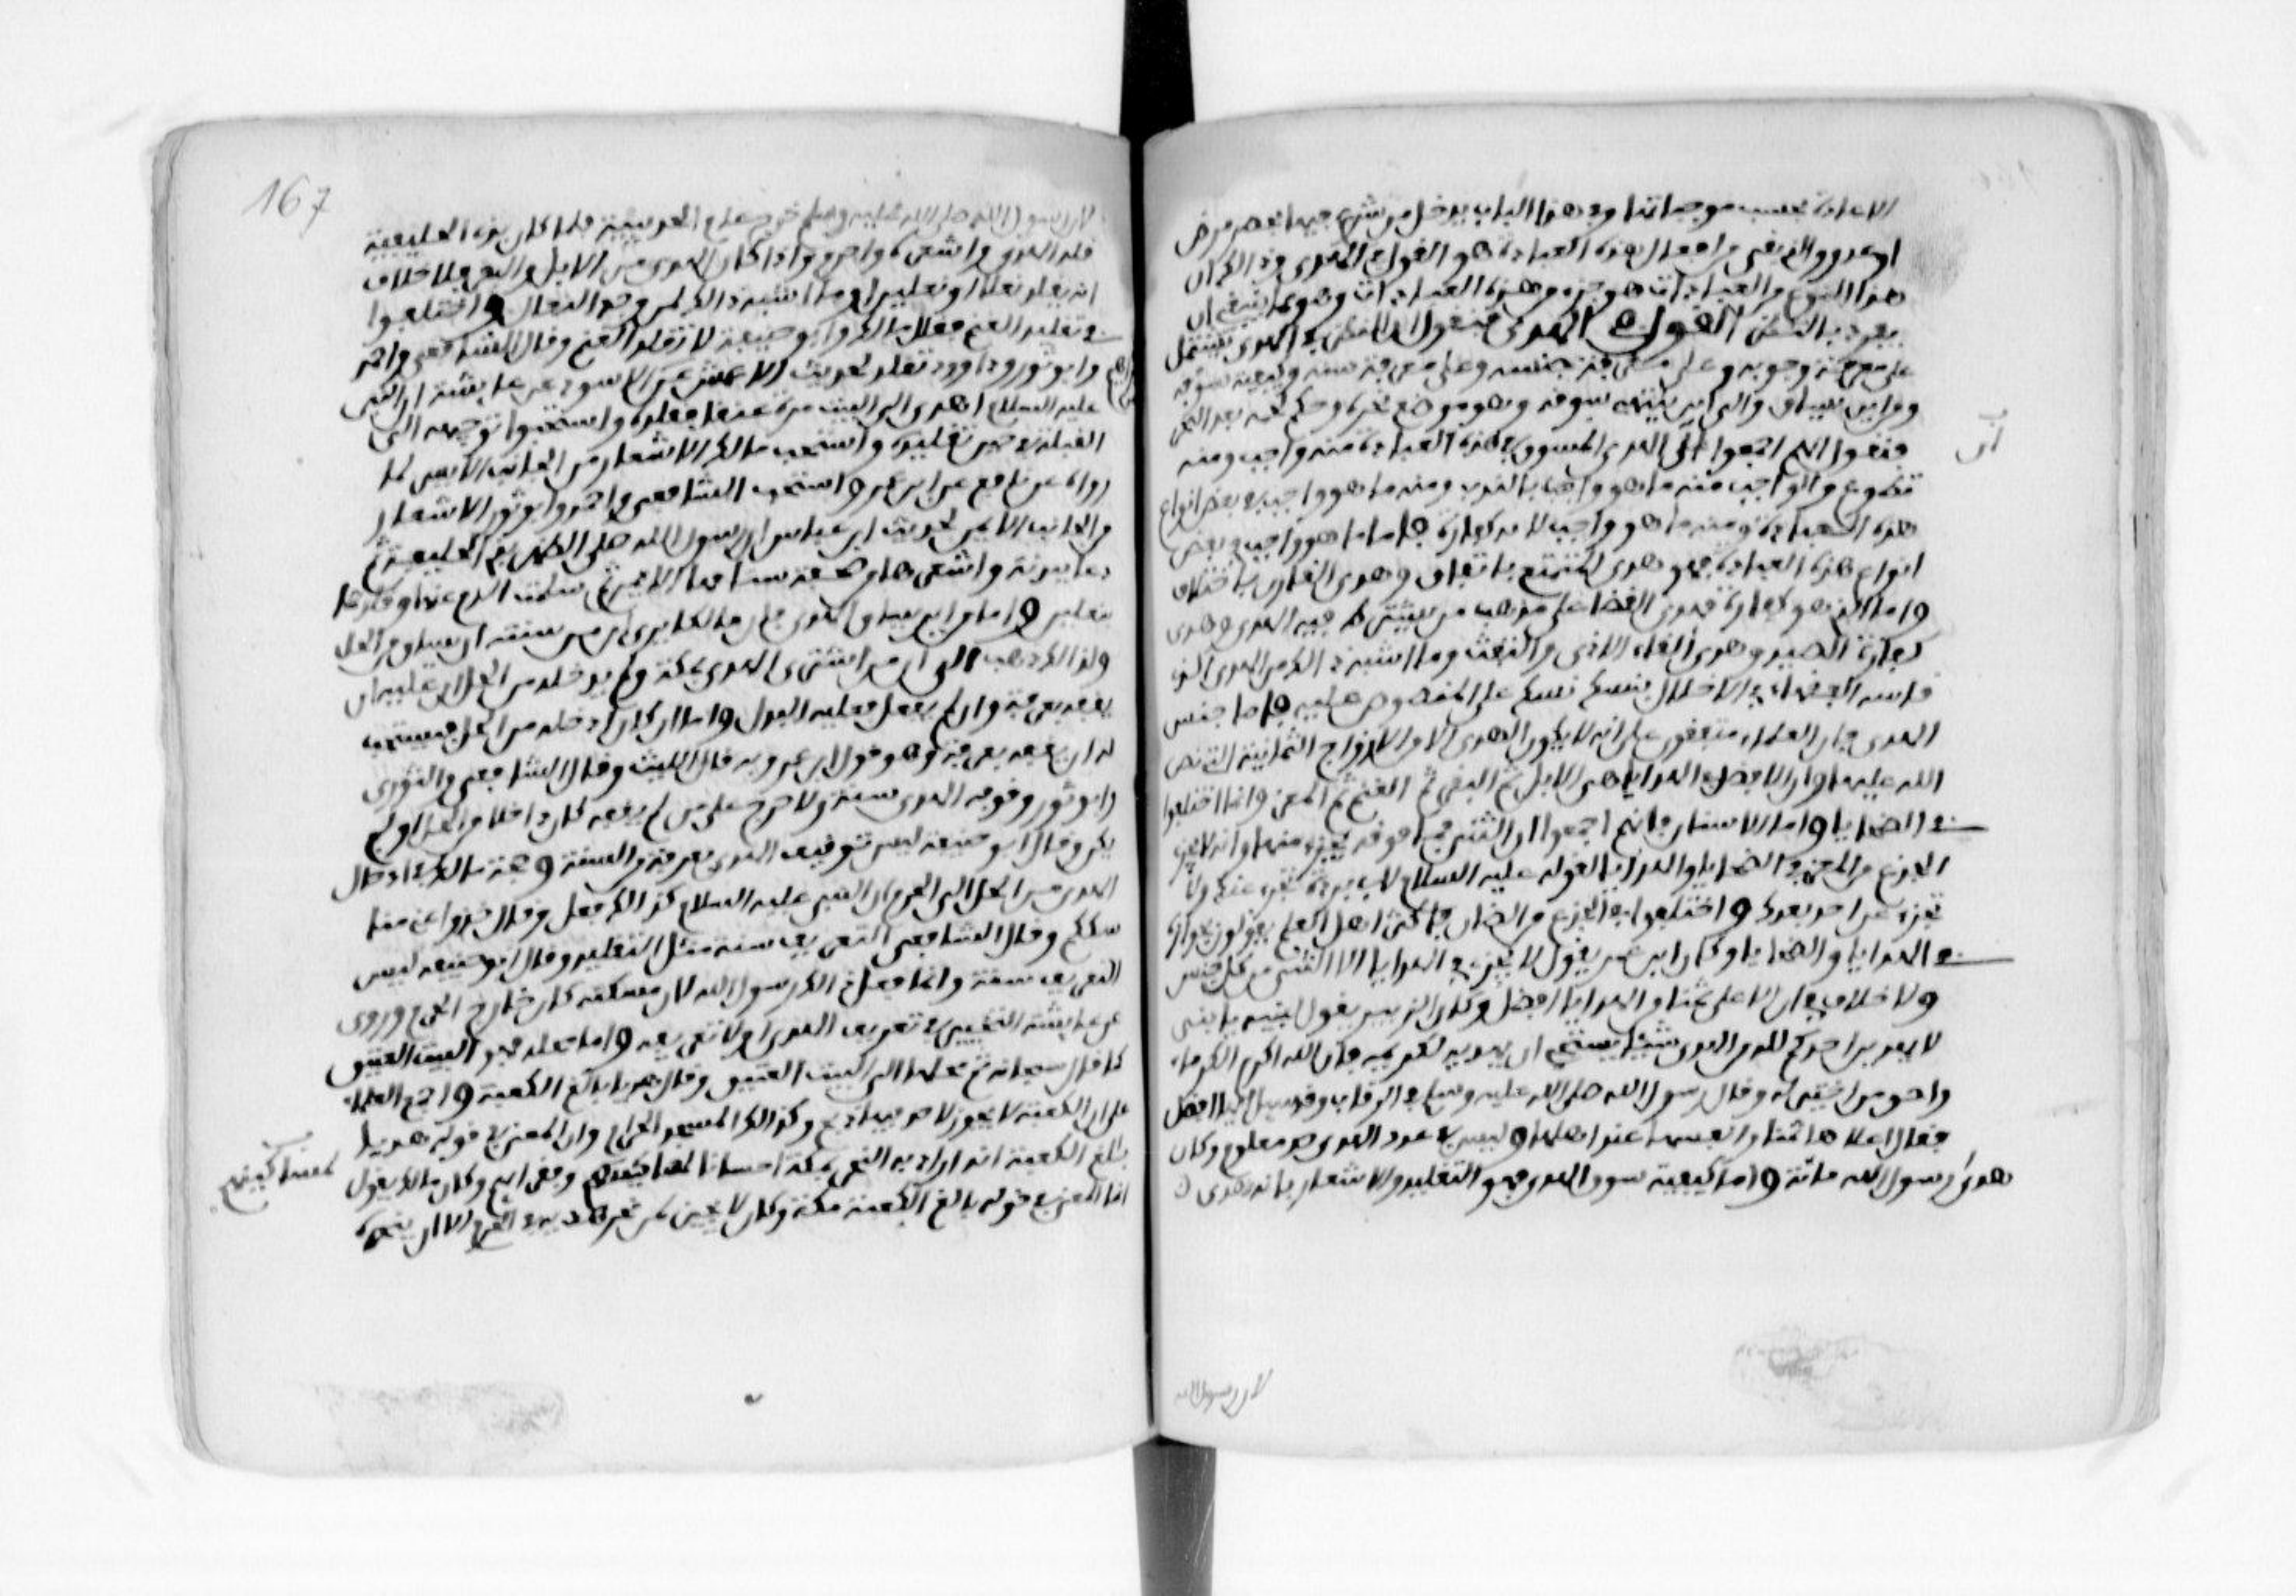 الاعادة بحسب موجباتها وفي هذا الباب يدخل من شرع فيها فاحصر بمرض
او عدو والذي بقي من افعال هذه العبادة هو القول في الهدي وذلك ان
هذا النوع من العبادات هو جزء من هذه العبادات وهو مما ينبغي ان
يفرد بالنظر القول في الهدي فنقول ان النظر في الهدي يشتمل
على معرفة وجوبه وعلى معرفة جنسه وعلى معرفة سنه وكيفية سوقه
ومن اين يساق والى اين ينتهي بسوقه وهو موضع نحره وحكم لحمه بعد النحر
فنقول انهم اجمعوا على ان الهدي المسوق في هذه العبادة منه واجب ومنه
تطوع والواجب منه ما هو واجب بالنذر ومنه ما هو واجب في بعض انواع
هذه العبادة ومنه ما هو واجب لانه كفارة فاما ما هو واجب في بعض
انواع هذه العبادة فهو هدي المتمتع باتفاق وهدي القارن باختلاف
واما الذي هو كفارة فهدي القضا على مذهب من يشترط فيه الهدي وهدي
كفارة الصيد وهدي القاء الاذى والتفث وما اشبه ذلك من الهدي الذي
قاسه الفقهاء في الاخلال بنسك نسك على المنصوص عليه فاما جنس
الهدي فان العلماء متفقون على انه لا يكون الهدي الا من الازواج الثمانية التي نص
الله عليها وان الافضل في الهدايا هي الابل ثم البقر ثم الغنم ثم المعز وانما اختلفوا
في الضحايا واما الاسنان فانهم اجمعوا ان الثني فما فوقه يجزي منها وانه لا يجزي
الجذع من المعز في الضحايا والهدايا لقوله عليه السلام لابي بردة تجزي عنك ولا
تجزي عن احد بعدك واختلفوا في الجذع من الضان فاكثر اهل العلم يقولون بجوازه
في الهدايا والضحايا وكان ابن عمر يقول لا يجزي في الهدايا الا الثني من كل جنس
ولا خلاف في ان الاعلى ثمنا من الهدايا افضل وكان الزبير يقول لبنيه يا بني
لا يهدين احدكم لله من الهدي شيئا يستحي ان يهديه لكريمه فان الله اكرم الكرماء
واحق من اختير له وقال رسول الله صلى الله عليه وسلم في الرقاب وقد قيل ايها افضل
فقال اغلاها ثمنا وانفسها عند اهلها وليس في عدد الهدي حد معلوم وكان
هدي رسول الله مائة واما كيفية سوق الهدي فهو التقليد والاشعار بانه هدي
لان رسول الله
لان رسول الله صلى الله عليه وسلم خرج عام الحديبية فلما كان بذي الحليفة
قلد الهدي واشعره واحرم واذا كان الهدي من الابل والبقر فلا خلاف
انه يقلد نعلا او نعلين او ما اشبه ذلك لمن لم يجد النعال واختلفوا
في تقليد الغنم فقال مالك وابو حنيفة لا تقلد الغنم وقال الشافعي واحمد
وابو ثور وداوود تقلد لحديث الاعمش عن الاسود عن عايشة ان النبي
عليه السلام اهدى الى البيت مرة غنما فقلده واستحبوا توجيهه الى
القبلة في حين تقليده واستحب مالك الاشعار من الجانب الايسر لما
رواه عن نافع عن ابن عمر واستحب الشافعي واحمد وابو ثور الاشعار
من الجانب الايمن لحديث ابن عباس ان رسول الله صلى الظهر بذي الحليفة ثم
دعا ببدنة واشعرها من صفحة سنامها الايمن ثم سلت الدم عنها وقلدها
بنعلين واما من اين يساق الهدي فان مالكا يرى ان من سنته ان يساق من الحل
ولذلك ذهب الى ان من اشترى الهدي بمكة ولم يدخله من الحل ان عليه ان
يقفه بعرفة وان لم يفعل فعليه البدل واما ان كان ادخله من الحل فيستحب
له ان يقفه بعرفة وهو قول ابن عمر وبه قال الليث وقال الشافعي والثوري
وابو ثور وقوف الهدي سنة ولا حرج على من لم يقفه كان داخلا من الحل او لم
يكن وقال ابو حنيفة ليس توقيف الهدي بعرفة من السنة وحجة مالك في ادخال
الهدي من الحل الى الحرم ان النبي عليه السلام كذلك فعل وقال خذوا عني منا
سككم وقال الشافعي التعريف سنة مثل التقليد وقال ابو حنيفة ليس
التعريف سنة وانما فعل ذلك رسول الله لان مسكنه كان خارج الحرم وروي
عن عايشة التخيير في تعريف الهدي او لا تعريفه واما محله فهو البيت العتيق
كما قال سبحانه ثم محلها الى البيت العتيق وقال هديا بالغ الكعبة واجمع العلماء
على ان الكعبة لا يجوز لاحد فيها ذبح وكذلك المسجد الحرام وان المعنى في قوله هديا
بالغ الكعبة انه اراد به النحر بمكة احسانا لمساكينهم وفقرايهم وكان مالك يقول
انما المعنى في قوله بالغ الكعبة مكة وكان لا يجيز لمن نحر هديه في الحرم الا ان ينحره
لمساكينهم
167